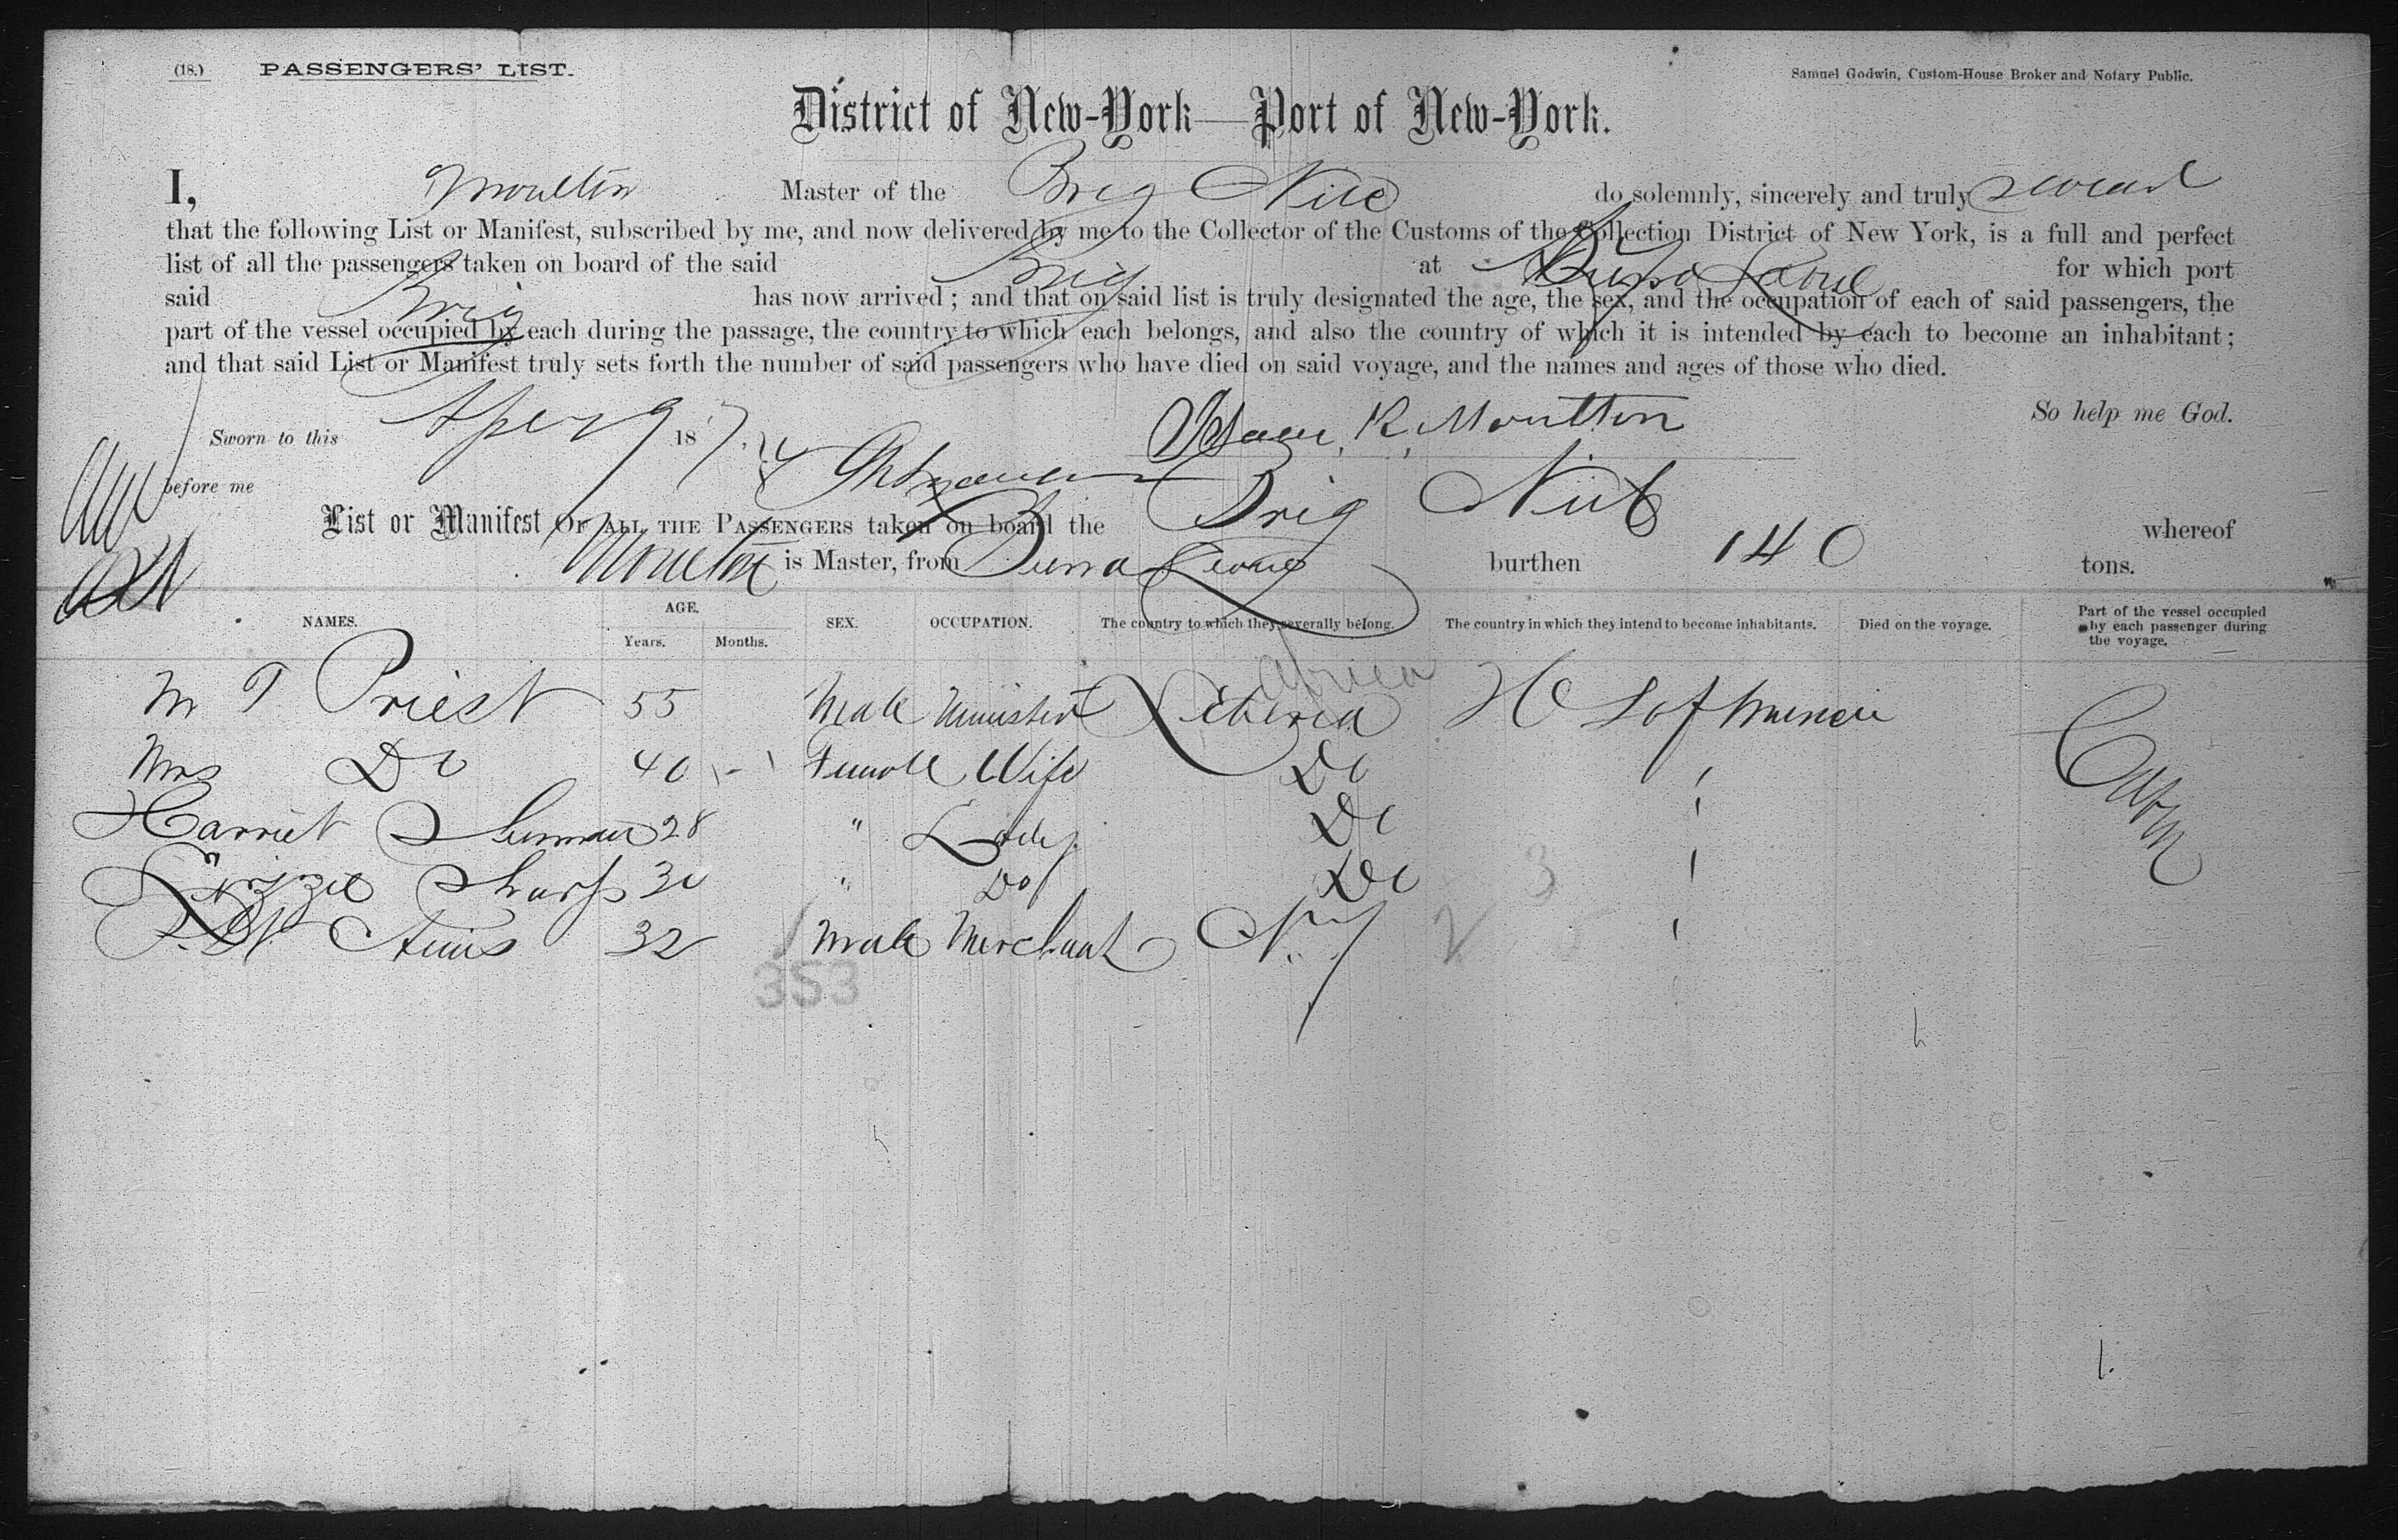 (18.) PASSENGERS' LIST.
Samuel Godwin, Custom-House Broker and Notary Public.
District of New-York—Port of New-York.
I, Moulton Master of the Brig Nile do solemnly, sincerely and truly swear
that the following List or Manifest, subscribed by me, and now delivered by me to the Collector of the Customs of the Collection District of New York, is a full and perfect
list of all the passengers taken on board of the said Brig at Leone for which port
said Brig has now arrived; and that on said list is truly designated the age, the sex, and the occupation of each of said passengers, the
part of the vessel occupied by each during the passage, the country to which each belongs, and also the country of which it is intended by each to become an inhabitant;
and that said List or Manifest truly sets forth the number of said passengers who have died on said voyage, and the names and ages of those who died.
So help me God.
Sworn to this 9 187 K. Moulton
before me
List or Manifest OF ALL THE PASSENGERS taken on board the Brig Nile whereof
Moulton is Master, from Leone burthen 140 tons.
NAMES. AGE. Years. Months. SEX. OCCUPATION. The country to which they severally belong. The country in which they intend to become inhabitants. Died on the voyage. Part of the vessel occupied by each passenger during the voyage.
Africa
M T Priest 55 Male Minister Liberia U S of America Cabin
Mrs Do 40 Female Wife Do
Harriet 28 " Lady Do
Lizzie Sharp 30 " Do Do
32 Male Merchant N.Y
2 3
353